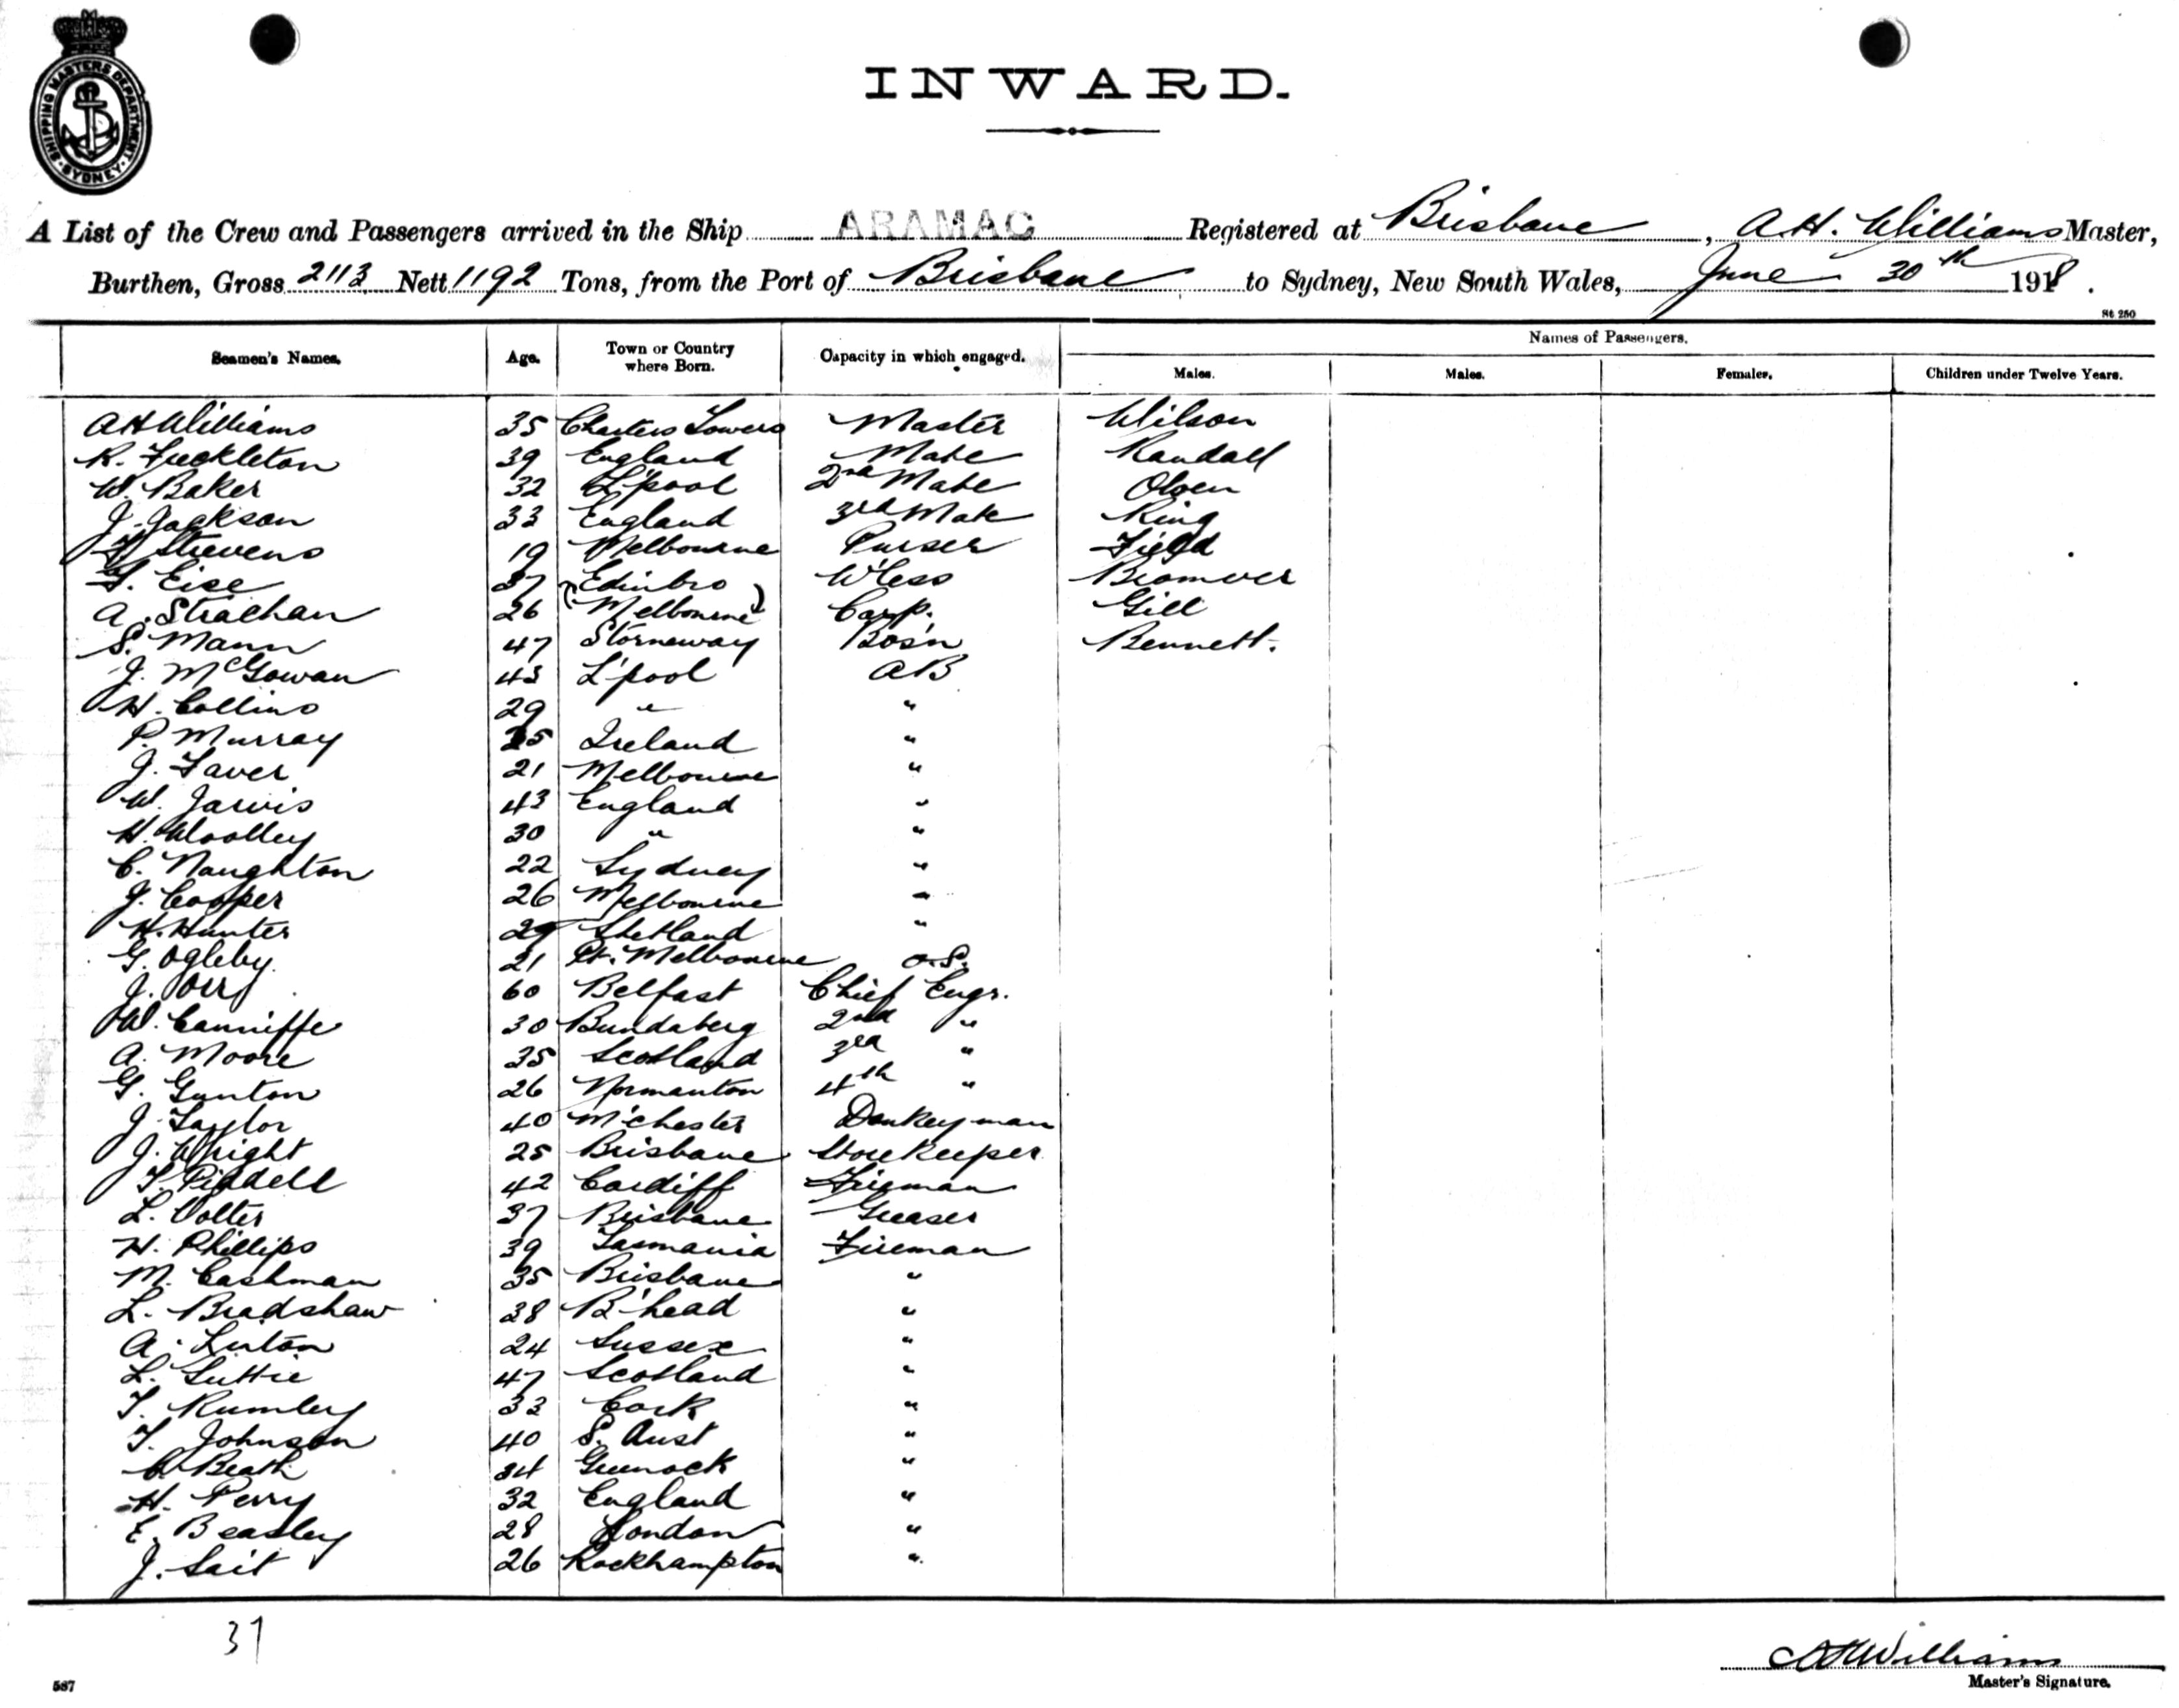 SHIPPING MASTERS DEPARTMENT SYDNEY
INWARD.
A List of the Crew and Passengers arrived in the Ship ARAMAC Registered at Brisbane, A.H. Williams Master,
Burthen, Gross 2113 Nett 1192 Tons, from the Port of Brisbane to Sydney, New South Wales, June 30th 1918.
St 250
Names of Passengers.
Seamen's Names. Age. Town or Country where Born. Capacity in which engaged. Males. Males. Females. Children under Twelve Years.
A H Williams 35 Charters Towers Master Wilson
R. Freckleton 39 England Mate Randall
W. Baker 32 L'pool 2nd Mate Olsen
J. Jackson 33 England 3rd Mate King
Stevens 19 Melbourne Purser Field
Eise 37 Edinbro W'less
A. Strachan 26 (Melbourne) Carp. Gill
S. Mann 47 Stornoway Bos'n Bennett.
J. McGowan 43 L'pool AB
H. Collins 29 " "
P. Murray 25 Ireland "
J. Faver 21 Melbourne "
W. Jarvis 43 England "
H. Woolley 30 " "
C. Naughton 22 Sydney "
J. Cooper 26 Melbourne "
H. Hunter 29 Shetland "
G. Ogleby 21 Pt. Melbourne O.S.
J. Orr 60 Belfast Chief Engr.
W. Canniffe 30 Bundaberg 2nd "
A. Moore 35 Scotland 3rd "
G. Gunton 26 Normanton 4th "
J. Taylor 40 M'chester Donkeyman
J. Wright 25 Brisbane Storekeeper
T. Piddell 42 Cardiff Fireman
L. Volter 37 Brisbane Greaser
H. Phillips 39 Tasmania Fireman
M. Cashman 35 Brisbane "
L. Bradshaw 38 B'head "
A. Luton 24 Sussex "
L. Luttie 47 Scotland "
T. Rumley 33 Cork "
T. Johnson 40 S. Aust "
Beath 34 Greenock "
H. Perry 32 England "
E. Beasley 28 London "
J. Sait 26 Rockhampton "
37
A H Williams
Master's Signature.
587